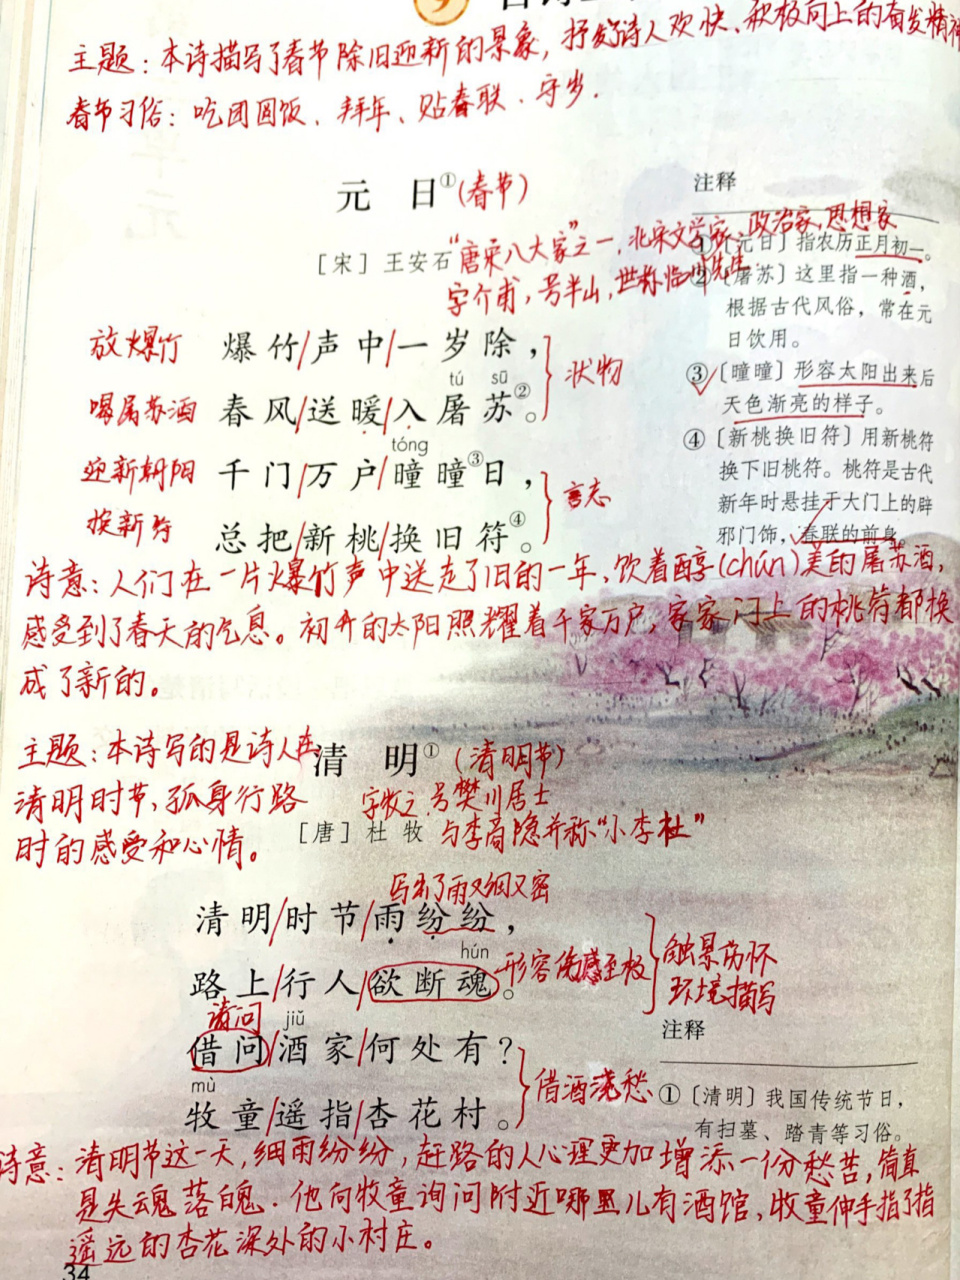 9
主题：本诗描写了春节除旧迎新的景象，抒发诗人欢快、积极向上的奋发精神
春节习俗：吃团圆饭、拜年、贴春联、守岁.
元 日①(春节)
[宋] 王安石 “唐宋八大家”之一，北宋文学家、政治家、思想家
字介甫，号半山，世称临川先生.
放爆竹 爆竹/声中/一岁除， 状物
tú sū
喝屠苏酒 春风/送暖/入屠苏②。
tóng
迎新朝阳 千门/万户/曈曈③日， 言志
换新符 总把/新桃/换旧符④。
注释
①〔元日〕指农历正月初一。
②〔屠苏〕这里指一种酒，
根据古代风俗，常在元
日饮用。
③〔曈曈〕形容太阳出来后
天色渐亮的样子。
④〔新桃换旧符〕用新桃符
换下旧桃符。桃符是古代
新年时悬挂于大门上的辟
邪门饰，春联的前身。
诗意：人们在一片爆竹声中送走了旧的一年、饮着醇(chún)美的屠苏酒，
感受到了春天的气息。初升的太阳照耀着千家万户，家家门上的桃符都换
成了新的。
主题：本诗写的是诗人在
清明时节、孤身行路
时的感受和心情。
清 明①(清明节)
字牧之、号樊川居士
[唐] 杜 牧 与李商隐并称“小李杜”
写出了雨又细又密
清明/时节/雨纷纷，
hún
路上/行人/欲断魂。形容伤感至极 触景伤怀
环境描写
请问 jiǔ
借问/酒家/何处有？
mù
牧童/遥指/杏花村。 借酒浇愁
注释
①〔清明〕我国传统节日，
有扫墓、踏青等习俗。
诗意：清明节这一天，细雨纷纷，赶路的人心理更加增添一份愁苦，简直
是失魂落魄.他向牧童询问附近哪里儿有酒馆，牧童伸手指了指
遥远的杏花深处的小村庄。
34